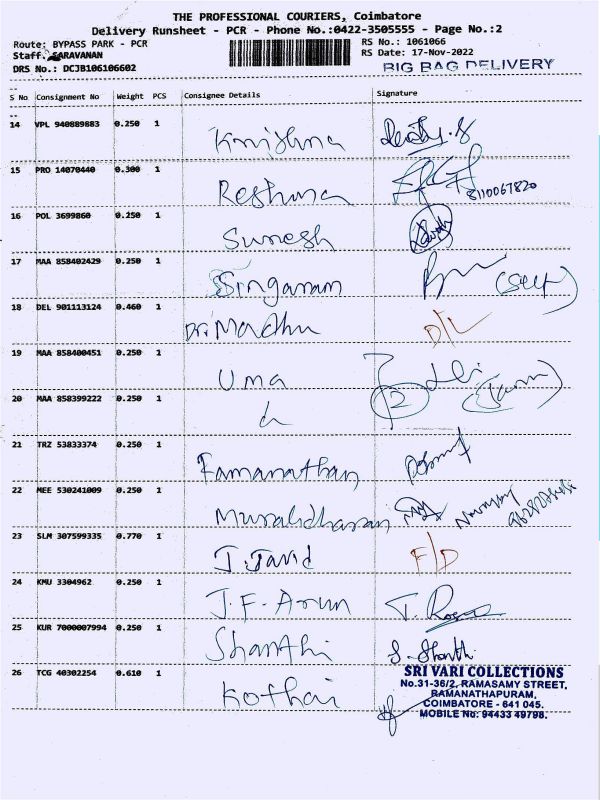 THE PROFESSIONAL COURIERS, Coimbatore
Delivery Runsheet - PCR - Phone No.:0422-3505555 - Page No.:2
Route: BYPASS PARK - PCR RS No.: 1061066
Staff. SARAVANAN RS Date: 17-Nov-2022
DRS No.: DCJB106106602 BIG BAG DELIVERY
S No Consignment No Weight PCS Consignee Details Signature
14 VPL 940889883 0.250 1
Krishna
15 PRO 14070440 0.300 1
Reshma 8110067820
16 POL 3699860 0.250 1
Suresh
17 MAA 858402429 0.250 1
Singaram (Self)
18 DEL 901113124 0.460 1
Dr. Madhu D/L
19 MAA 858400451 0.250 1
Uma
20 MAA 858399222 0.250 1
2
21 TRZ 53833374 0.250 1
Ramanathan
22 MEE 530241009 0.250 1
Muralidharan
23 SLM 307599335 0.770 1
J. Javid F/D
24 KMU 3304962 0.250 1
J.F. Arun
25 KUR 7000007994 0.250 1
Shanthi S. Shanthi
26 TCG 40302254 0.610 1
Kothai
SRI VARI COLLECTIONS
No.31-36/2, RAMASAMY STREET,
RAMANATHAPURAM,
COIMBATORE - 641 045.
MOBILE No: 94433 49798.